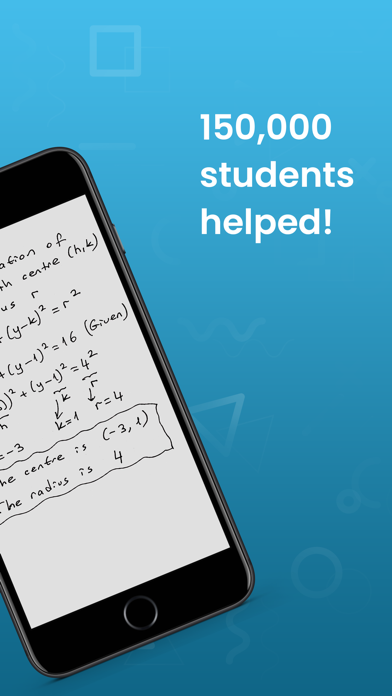 150,000
students
helped!
ation of
th centre (h,k)
us r
+(y-k)²=r²
+(y-1)²=16 (Given)
))²+(y-1)²=4²
h k r
k=1 r=4
=-3
he centre is (-3,1)
The radius is 4